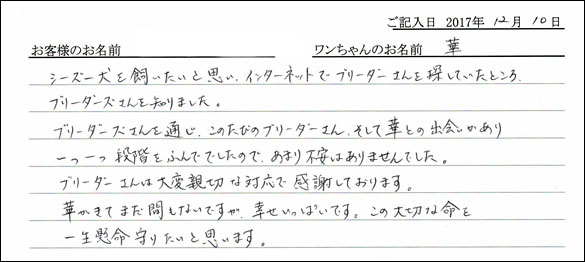 ご記入日 2017年 12月 10日
お客様のお名前 ワンちゃんのお名前 華
シーズー犬を飼いたいと思い、インターネットでブリーダーさんを探していたところ、
ブリーダーズさんを知りました。
ブリーダーズさんを通じ、このたびのブリーダーさん、そして華との出会いがあり
一つ一つ段階をふんででしたので、あまり不安はありませんでした。
ブリーダーさんは大変親切な対応で感謝しております。
華がきてまだ間もないですが、幸せいっぱいです。この大切な命を
一生懸命守りたいと思います。